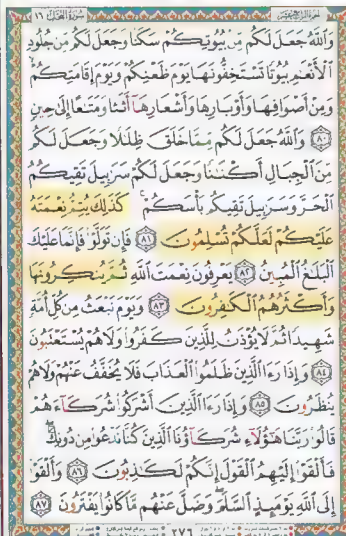 الجزء الرابع عشر سورة النحل ١٦
وَٱللَّهُ جَعَلَ لَكُم مِّنۢ بُيُوتِكُمْ سَكَنًا وَجَعَلَ لَكُم مِّن جُلُودِ
ٱلْأَنْعَٰمِ بُيُوتًا تَسْتَخِفُّونَهَا يَوْمَ ظَعْنِكُمْ وَيَوْمَ إِقَامَتِكُمْ
وَمِنْ أَصْوَافِهَا وَأَوْبَارِهَا وَأَشْعَارِهَآ أَثَٰثًا وَمَتَٰعًا إِلَىٰ حِينٍ
٨٠ وَٱللَّهُ جَعَلَ لَكُم مِّمَّا خَلَقَ ظِلَٰلًا وَجَعَلَ لَكُم
مِّنَ ٱلْجِبَالِ أَكْنَٰنًا وَجَعَلَ لَكُمْ سَرَٰبِيلَ تَقِيكُمُ
ٱلْحَرَّ وَسَرَٰبِيلَ تَقِيكُم بَأْسَكُمْ ۚ كَذَٰلِكَ يُتِمُّ نِعْمَتَهُۥ
عَلَيْكُمْ لَعَلَّكُمْ تُسْلِمُونَ ٨١ فَإِن تَوَلَّوْا۟ فَإِنَّمَا عَلَيْكَ
ٱلْبَلَٰغُ ٱلْمُبِينُ ٨٢ يَعْرِفُونَ نِعْمَتَ ٱللَّهِ ثُمَّ يُنكِرُونَهَا
وَأَكْثَرُهُمُ ٱلْكَٰفِرُونَ ٨٣ وَيَوْمَ نَبْعَثُ مِن كُلِّ أُمَّةٍ
شَهِيدًا ثُمَّ لَا يُؤْذَنُ لِلَّذِينَ كَفَرُوا۟ وَلَا هُمْ يُسْتَعْتَبُونَ
٨٤ وَإِذَا رَءَا ٱلَّذِينَ ظَلَمُوا۟ ٱلْعَذَابَ فَلَا يُخَفَّفُ عَنْهُمْ وَلَا هُمْ
يُنظَرُونَ ٨٥ وَإِذَا رَءَا ٱلَّذِينَ أَشْرَكُوا۟ شُرَكَآءَهُمْ
قَالُوا۟ رَبَّنَا هَٰٓؤُلَآءِ شُرَكَآؤُنَا ٱلَّذِينَ كُنَّا نَدْعُوا۟ مِن دُونِكَ ۖ
فَأَلْقَوْا۟ إِلَيْهِمُ ٱلْقَوْلَ إِنَّكُمْ لَكَٰذِبُونَ ٨٦ وَأَلْقَوْا۟
إِلَى ٱللَّهِ يَوْمَئِذٍ ٱلسَّلَمَ ۖ وَضَلَّ عَنْهُم مَّا كَانُوا۟ يَفْتَرُونَ ٨٧
٢٧٦